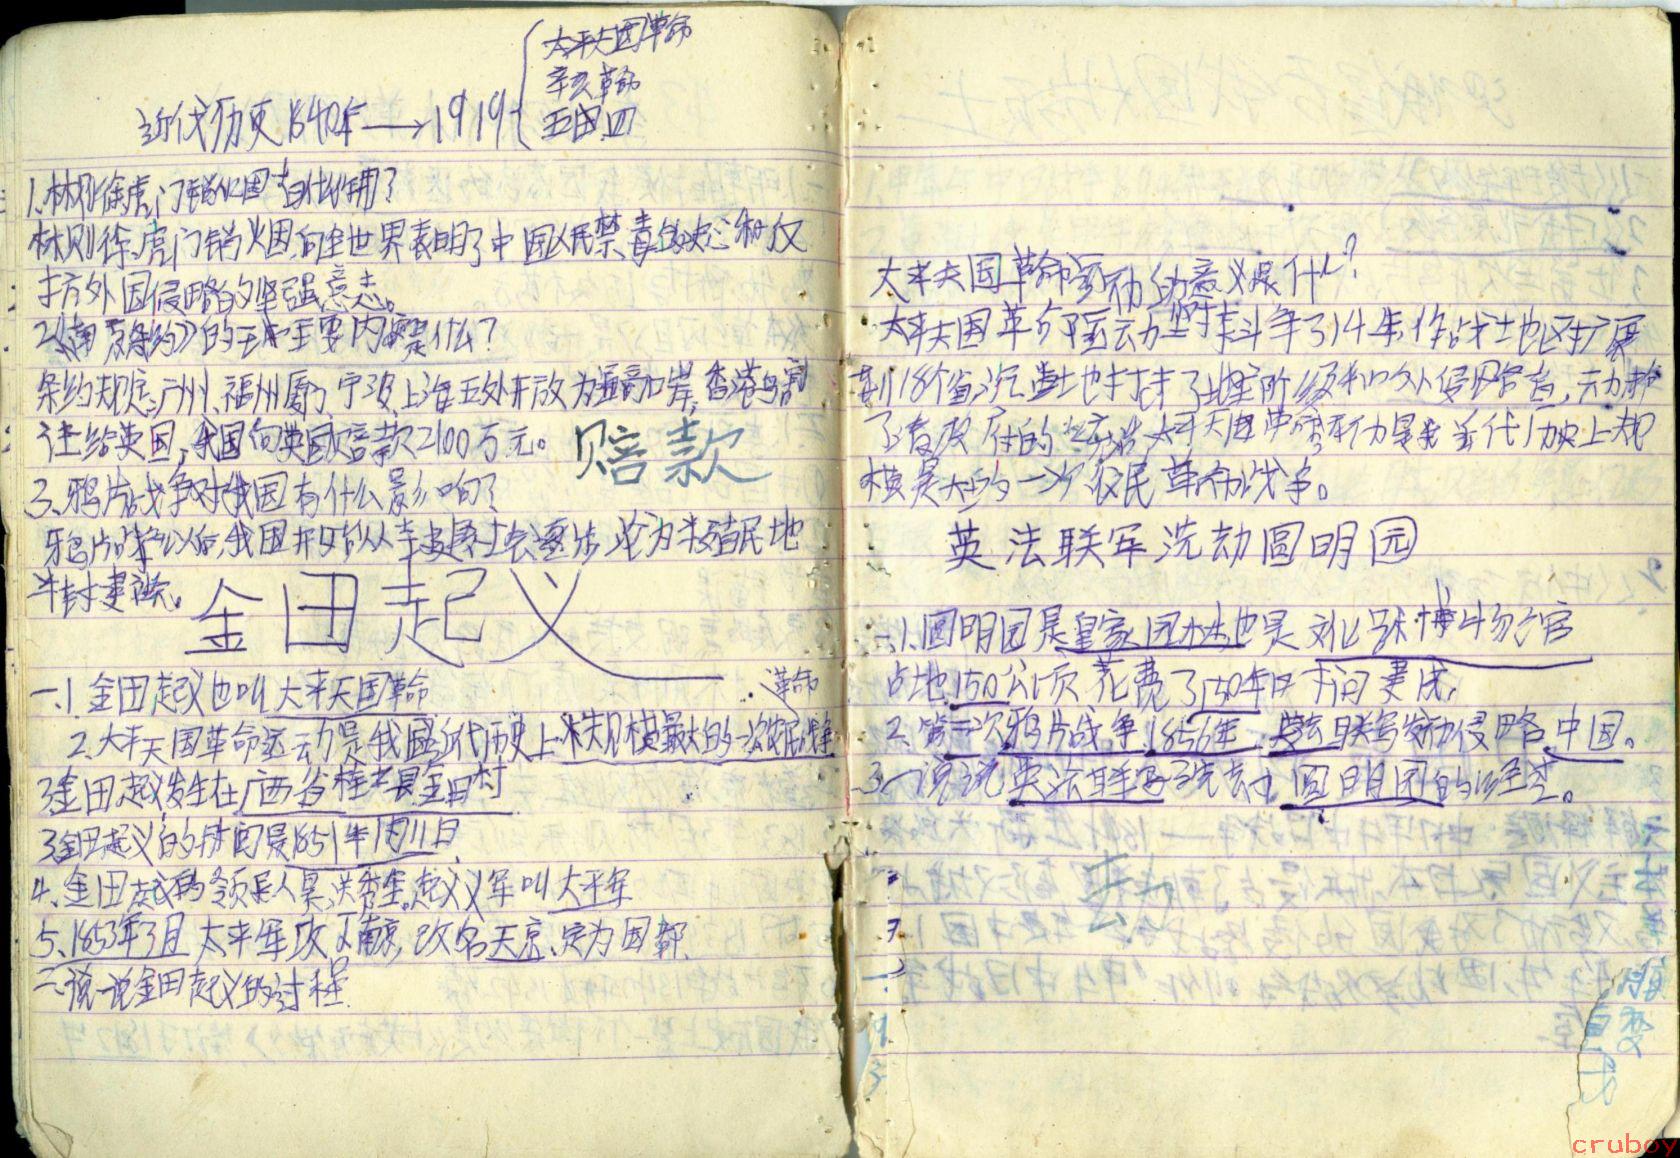 太平天国革命
辛亥革命
五四
近代历史1840年→1919
1.林则徐虎门销烟有什作用？
林则徐虎门销烟,向全世界表明了中国人民禁毒的决心和反
抗外国侵略的坚强意志。
2《南京条约》的主要内容是什么？
条约规定:广州、福州厦门宁波上海五处开放为通商口岸,香港岛割
让给英国,我国向英国赔款2100万元。
赔款
3、鸦片战争对我国有什么影响？
鸦片战争以后,我国开始从封建社会逐步沦为半殖民地
半封建社会。
金田起义
一.1 金田起义也叫太平天国革命
革命
2.太平天国革命运动是我国近代历史上规模最大的一次农民战争
3.金田起义发生在广西省桂平县金田村
3.金田起义的时间是1851年1月11日
4、金田起义的领导人是洪秀全。起义军叫太平军
5、1853年3月太平军攻下南京,改名天京、定为国都
二、说一说金田起义的过程
太平天国革命运动的意义是什么？
太平天国革命运动坚持斗争了14年,作战地区扩展
到18个省,沉重地打击了地主阶级和外侵略者,动摇
了清政府的统治,太平天国革命运动是我近代历史上规
模最大的一次农民革命战争。
英法联军洗劫圆明园
一.1.圆明园是皇家园林,也是
占地150公顷花费了150年时间建成,
2、第二次鸦片战争1856年、英法联军发动侵略中国。
3、说说英法联军洗劫圆明园的经过。
去
cruboy